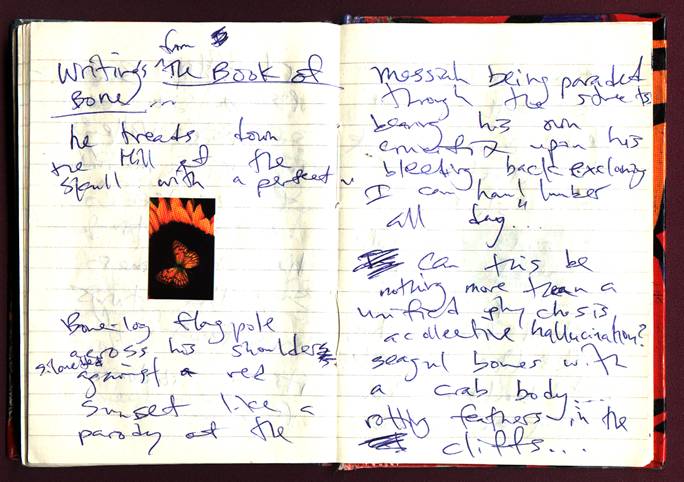 from
Writings ^ The Book of
Bone...
he treads down
the Hill of the
Skull with a perfect
Bone-log flagpole
across his shoulders
silouetted
against a red
sunset like a
parody of the
messiah being paraded
through the streets
bearing his own
crucifix upon his
bleeding back exclaiming
I can haul lumber
all day..."
Can this be
nothing more than a
unified phychosis
a collective hallucination?
seagul bones with
a crab body....
rotting feathers in the
cliffs....